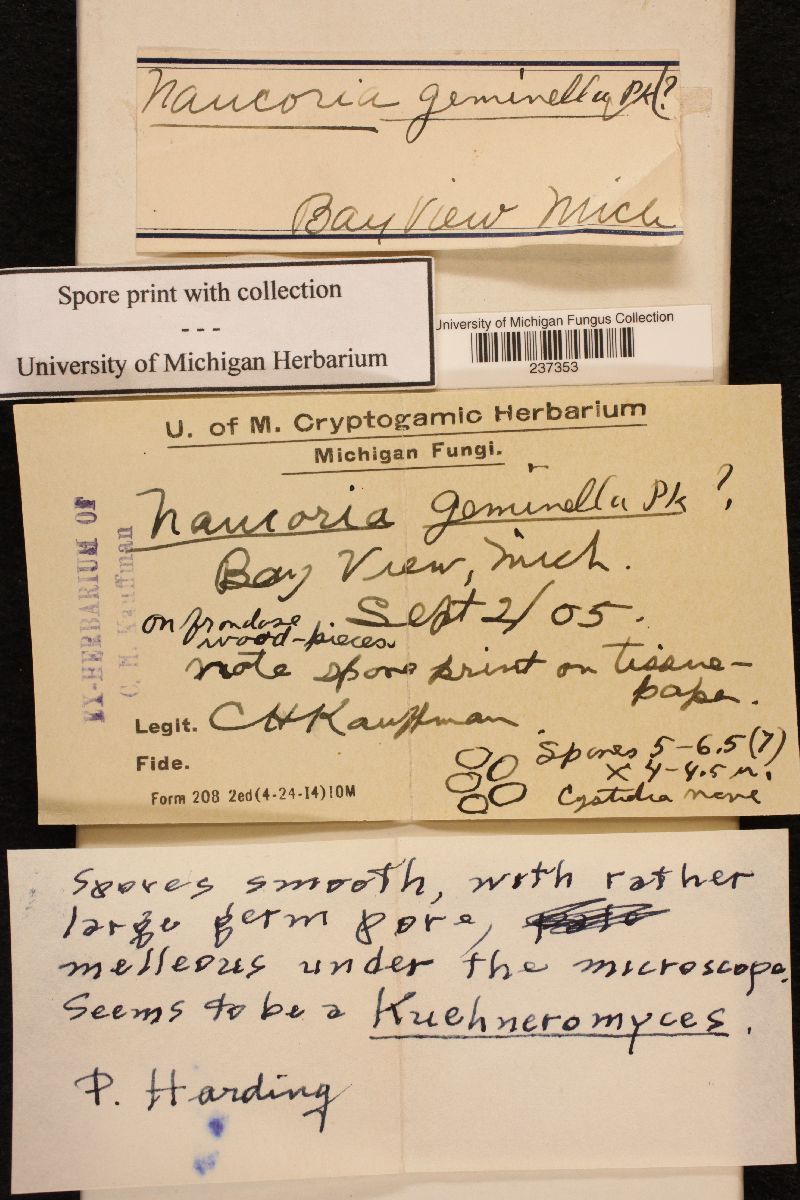 Naucoria geminella Pk(?
Bay View Mich
Spore print with collection
- - -
University of Michigan Herbarium
University of Michigan Fungus Collection
237353
U. of M. Cryptogamic Herbarium
Michigan Fungi.
Naucoria geminella Pk ?
Bay View, Mich.
Sept 2/05.
on frondose
wood-pieces.
note spore print on tissue-
paper.
Legit. CHKauffman
Fide.
Spores 5-6.5(7)
× 4-4.5 u.
Cystidia none
Form 208 2ed(4-24-14)10M
EX-HERBARIUM OF
C. H. Kauffman
Spores smooth, with rather
large germ pore,
melleous under the microscope.
Seems to be a Kuehneromyces.
P. Harding